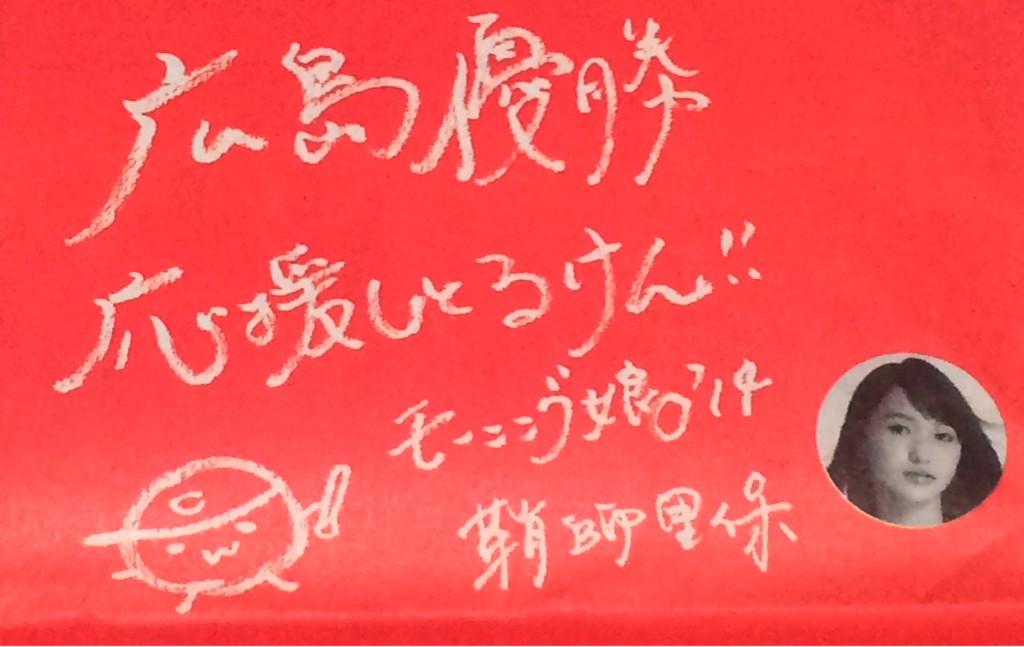 広島優勝
応援しとるけん!!
モーニング娘。'14
鞘師里保
C